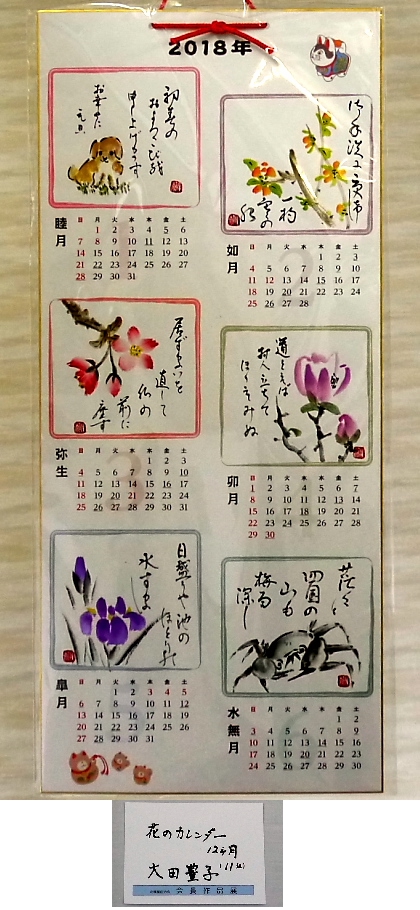 2018年
初春の
およろこび
申し上げます
元旦
睦月
日 月 火 水 木 金 土
1 2 3 4 5 6
7 8 9 10 11 12 13
14 15 16 17 18 19 20
21 22 23 24 25 26 27
28 29 30 31
如月
日 月 火 水 木 金 土
1 2 3
4 5 6 7 8 9 10
11 12 13 14 15 16 17
18 19 20 21 22 23 24
25 26 27 28
居ずまいを
直して
仏の
前に
座す
弥生
日 月 火 水 木 金 土
1 2 3
4 5 6 7 8 9 10
11 12 13 14 15 16 17
18 19 20 21 22 23 24
25 26 27 28 29 30 31
道をとえば
村人立ちて
ほほえみぬ
卯月
日 月 火 水 木 金 土
1 2 3 4 5 6 7
8 9 10 11 12 13 14
15 16 17 18 19 20 21
22 23 24 25 26 27 28
29 30
日盛りや池の
ほとりの
水すまし
皐月
日 月 火 水 木 金 土
1 2 3 4 5
6 7 8 9 10 11 12
13 14 15 16 17 18 19
20 21 22 23 24 25 26
27 28 29 30 31
茫々と
四国の
山も
梅雨
深し
水無月
日 月 火 水 木 金 土
1 2
3 4 5 6 7 8 9
10 11 12 13 14 15 16
17 18 19 20 21 22 23
24 25 26 27 28 29 30
花のカレンダー
12ヶ月
大田豊子
会員作品展